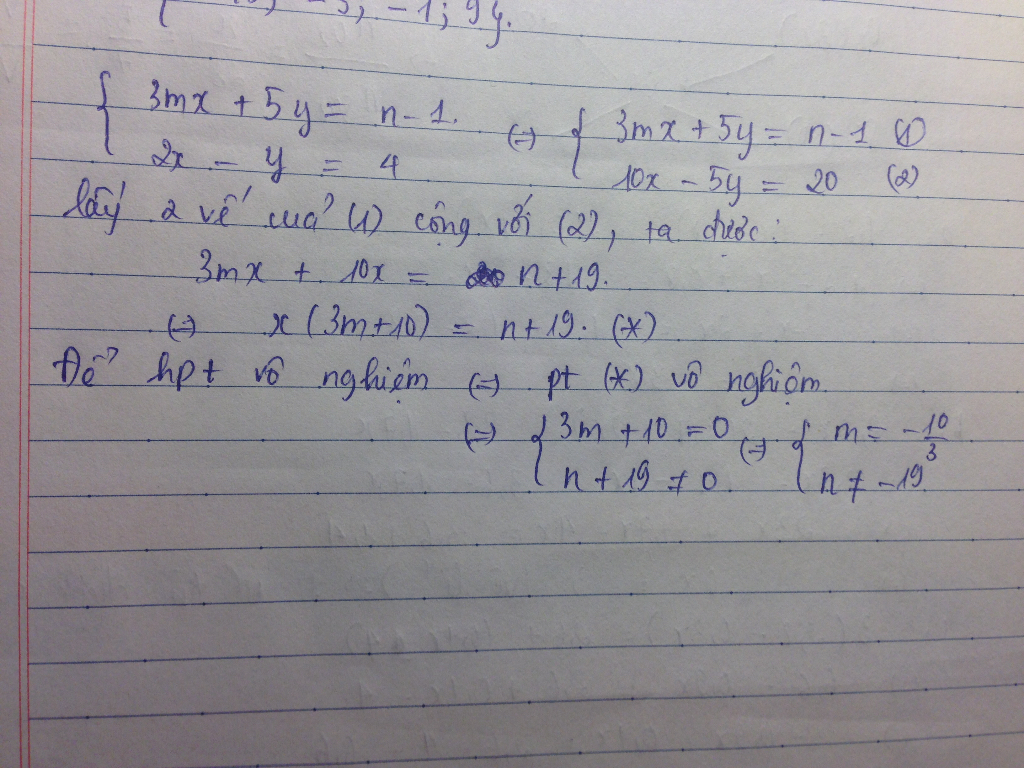 -3, -1; 9}.
{ 3mx + 5y = n - 1. (=) { 3mx + 5y = n - 1 (1)
2x - y = 4 10x - 5y = 20 (2)
lấy 2 vế của (1) cộng với (2), ta được:
3mx + 10x = n + 19.
(=) x (3m+10) = n + 19. (*)
Để hpt vô nghiệm (=) pt (*) vô nghiệm.
(=) { 3m + 10 = 0 (=) { m = -10/3
n + 19 ≠ 0 n ≠ -19